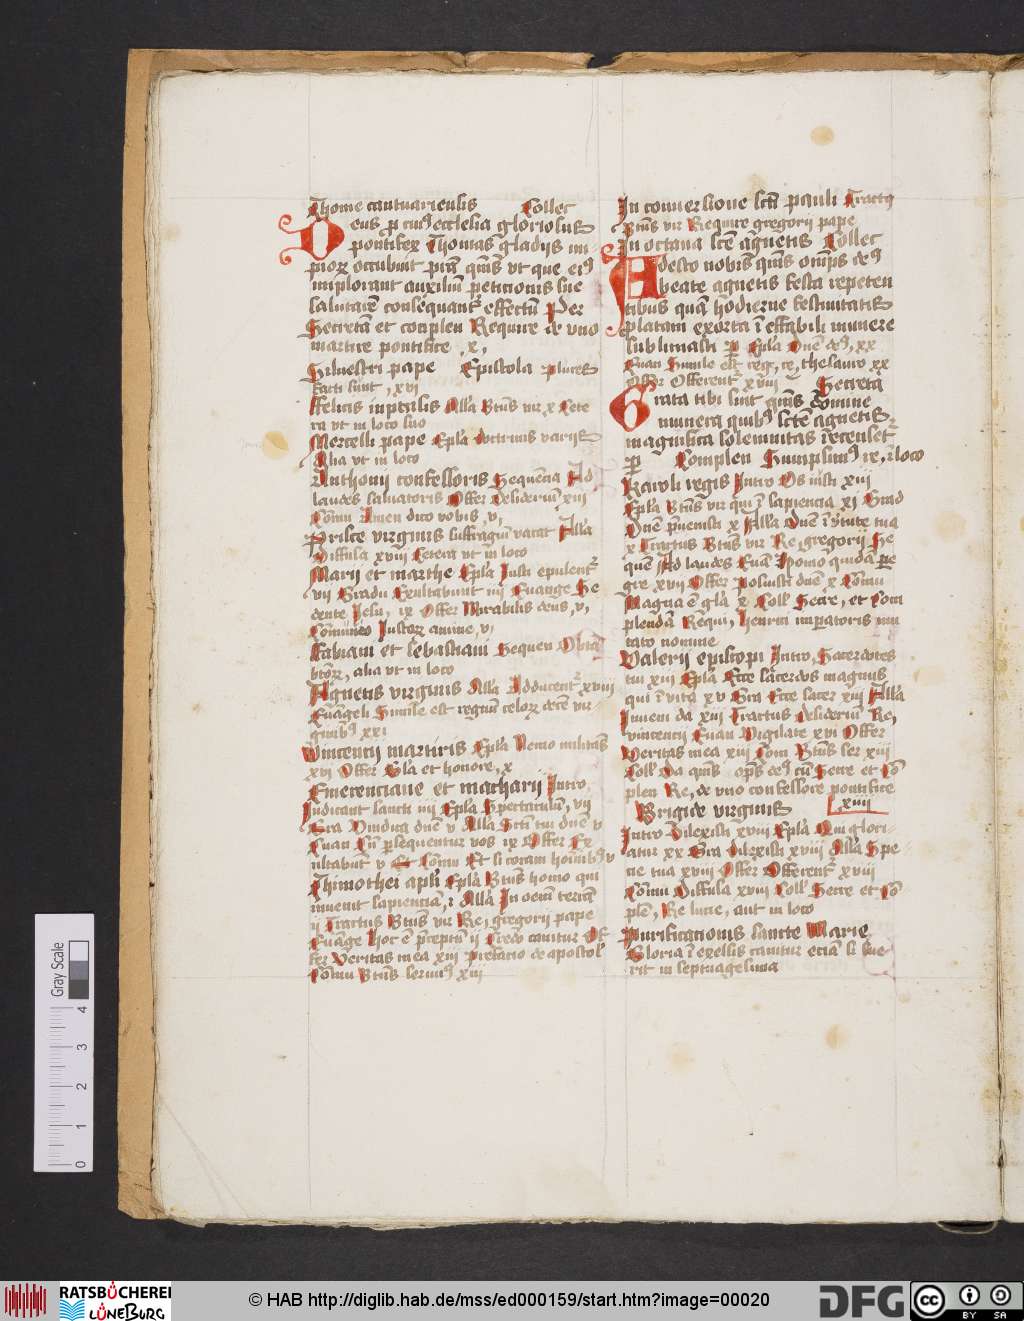 Thome cantuariensis Collec
Deus p cui9 ecclesia gloriosus
pontifex Thomas gladijs im
pior occubuit
implorant auxilium peticionis sue
salutare consequant effectu Per
Secretam et complen Require de vno
martire pontifice .x.
Siluestri pape Epistola plures
facti sunt, xvi
Felicis inpinlis Alla Btus vir x Cete
ra vt in loco suo
Marcelli pape Epla doctrinis varijs
Alia vt in loco
Anthonij confessoris Sequecia Ad
laudes saluatoris Offer desideriu xiii
Comu Amen dico vobis, v,
Prisce virginis suffragiu vacat Alla
Diffusa xviii Cetera vt in loco
Marij et marthe Epla Iusti epulent
vij Gradu Exultabunt iiij Euange Se
dente Jesu, ix Offer Mirabilis deus, v,
Comunio Iustor anime, v,
Fabiani et sebastiani Sequen
alia vt in loco
Agnetis virginis Alla Adducent xviii
Euangeli Simile est regnu celor dece vir
ginib9 xxi
Vincencij martiris Epla Nemo militas
xvi Offer Gla et honore, x
Emerenciane et macharij Intro
Iudicant sancti iiij Epla Spectaculu, vij
Gra Vindica dne v Alla Scti tui dne v
Euan Cu psequentur vos ix Offer Ex
ultabut v Et Comu Et si coram hoinib9 v
Thimothei apli Epla Btus homo qui
inuenit sapiencia, i Alla In oem terra
ij Tractus Btus vir Re, gregorij pape
Euange Hoc e pceptu ij Credo canitur Of
fer Veritas mea xiii Prefacio de apostol
Comu Btus seruus xiii
In conuersione scti pauli Tractq
Btus vir Require gregorij pape
In octaua scte agnetis Collec
Adesto nobis qms omps de9
beate agnetis festa repeten
tibus qua hodierne festiuitatis
platam exorta i effabili munere
sublimasti p Epla Dne de9, xx
Euan Simile est reg, ce, thesauro xx
Offer Offerent xviii Secreta
Grata tibi sint qms domine
munera quib9 scte agnetis
magnifica solemnitas recenset
p Complen Sumpsim9 re, i loco
Karoli regis Intro Os iusti xiii
Epla Btus vir qui i sapiencia xi Grad
Dne pueniste x Alla Dne i vtute tua
x Tractus Btus vir Re, gregorij Se
quen Ad laudes Eua Homo quida pe
gre xvii Offer Posuisti dne x Comu
Magna e gla x Coll Secre, et Com
plenda Requi, henrici imperatoris mu
tato nomine
Valerij episcopi Intro, Sacerdotes
tui xiii Epla Ecce sacerdos magnus
qui i vita xv Gra Ecce sacer xiii Alla
Inueni da xiii Tractus desideriu Re,
vincencij Euan Vigilate xvi Offer
Veritas mea xiii Com Btus ser xiii
Coll Da qms ops de9 cu Secre et Co
plen Re, de vno confessore pontifice
xiiii
Brigide virginis
Intro Dilexisti xviii Epla Qui glori
atur xx Gra Dilexisti xviii Alla Spe
cie tua xviii Offer Offerent xviii
Comu Diffusa xviii Coll Secre et Co
ple, Re lucie, aut in loco
Purificacionis sancte Marie
Gloria i excelsis canitur ecia si fue
rit in septuagesima
Gray Scale
4
3
2
1
0
RATSBÜCHEREI
LÜNEBURG
© HAB http://diglib.hab.de/mss/ed000159/start.htm?image=00020
DFG
cc
BY SA